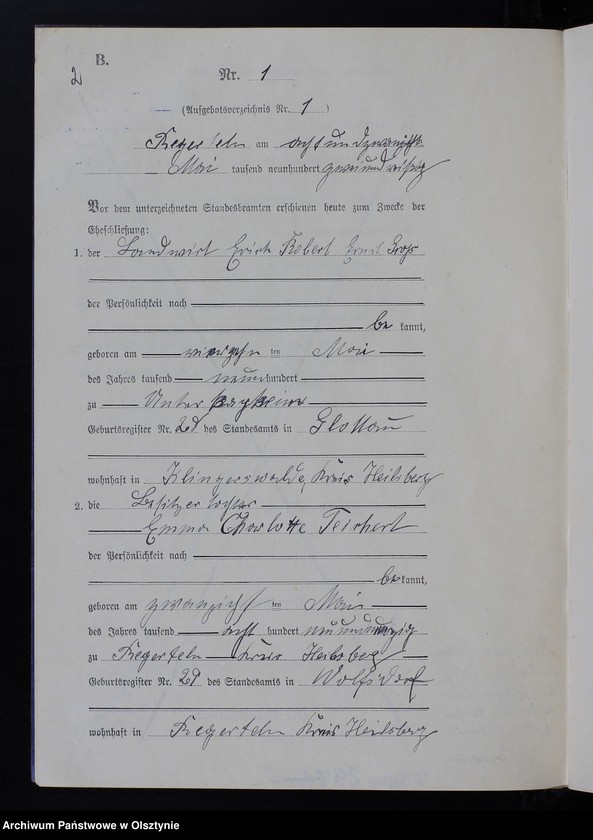 B.
2
Nr. 1
(Aufgebotsverzeichnis Nr. 1)
Regerteln am achtundzwanzigsten
Mai tausend neunhundert zweiunddreißig
Vor dem unterzeichneten Standesbeamten erschienen heute zum Zwecke der
Eheschließung:
1. der Landwirt Erich Robert Ernst Groß
der Persönlichkeit nach
be kannt,
geboren am vierzehn ten Mai
des Jahres tausend neunhundert
zu Unter Kapkeim
Geburtsregister Nr. 28 des Standesamts in Glottau
wohnhaft in Klingerswalde, Kreis Heilsberg
2. die Besitzertochter
Emma Charlotte Teichert
der Persönlichkeit nach
be kannt,
geboren am zwanzigs ten Mai
des Jahres tausend acht hundert
zu Regerteln Kreis Heilsberg
Geburtsregister Nr. 29 des Standesamts in Wolfsdorf
wohnhaft in Regerteln Kreis Heilsberg
Archiwum Państwowe w Olsztynie